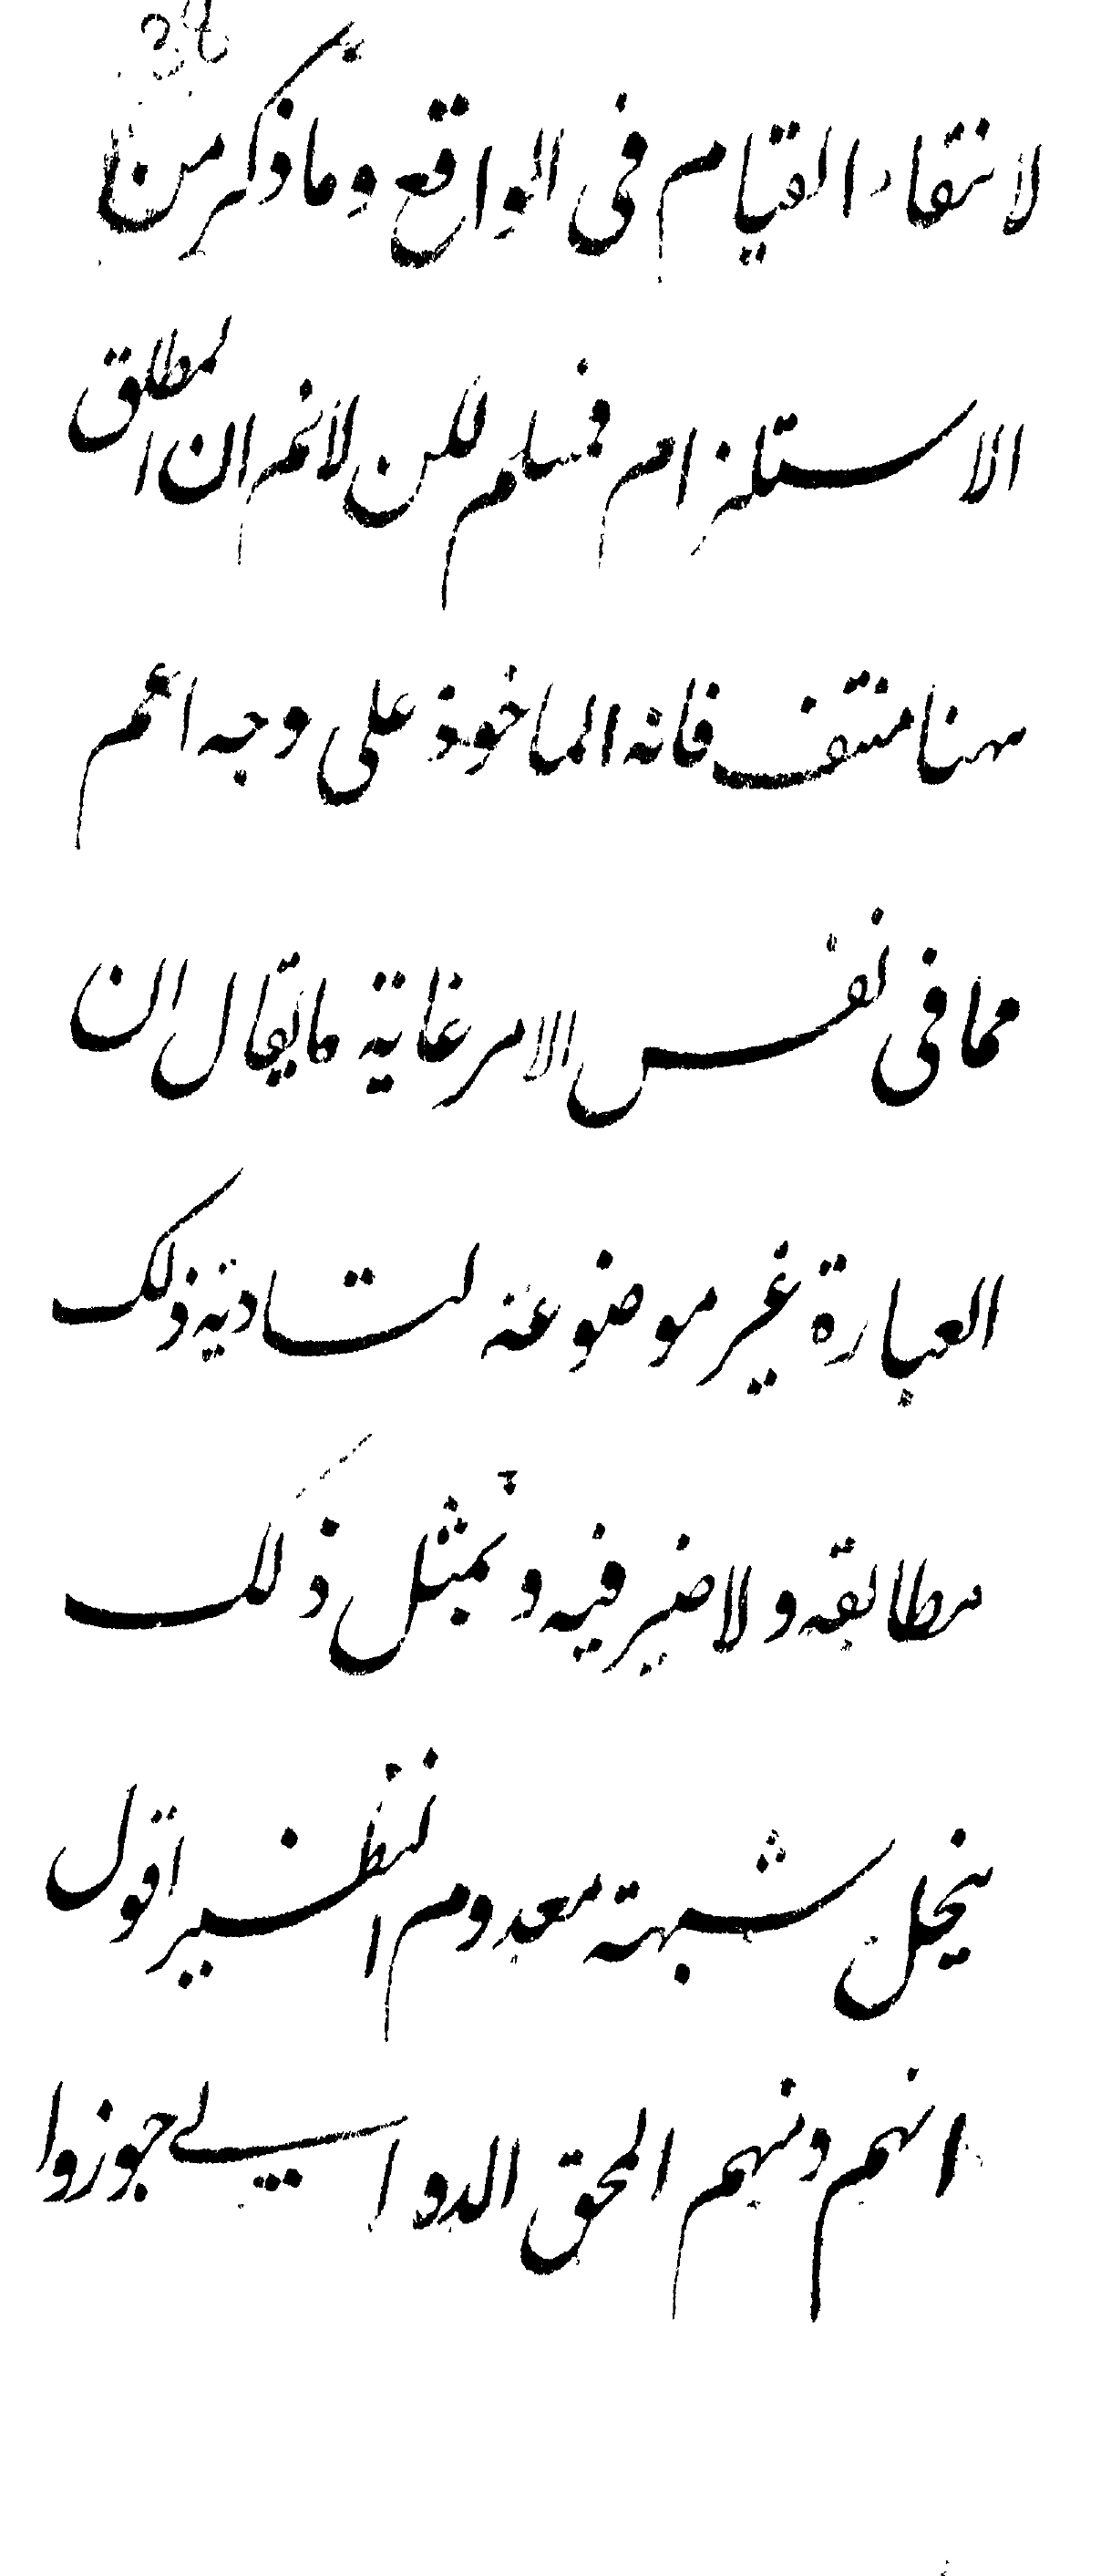 لانتقاء القيام فى الواقع وما ذكر من
الاستلزام فمسلم لكن لانم ان المطلق
ههنا منتف فانه الماخوذ على وجه اعم
مما فى نفس الامر غاية ما يقال ان
العبارة غير موضوعة لتادية ذلك
مطابقه ولا ضير فيه و بمثل ذلك
ينحل شبهة معدوم النظير اقول
انهم ومنهم المحقق الدوانى جوزوا